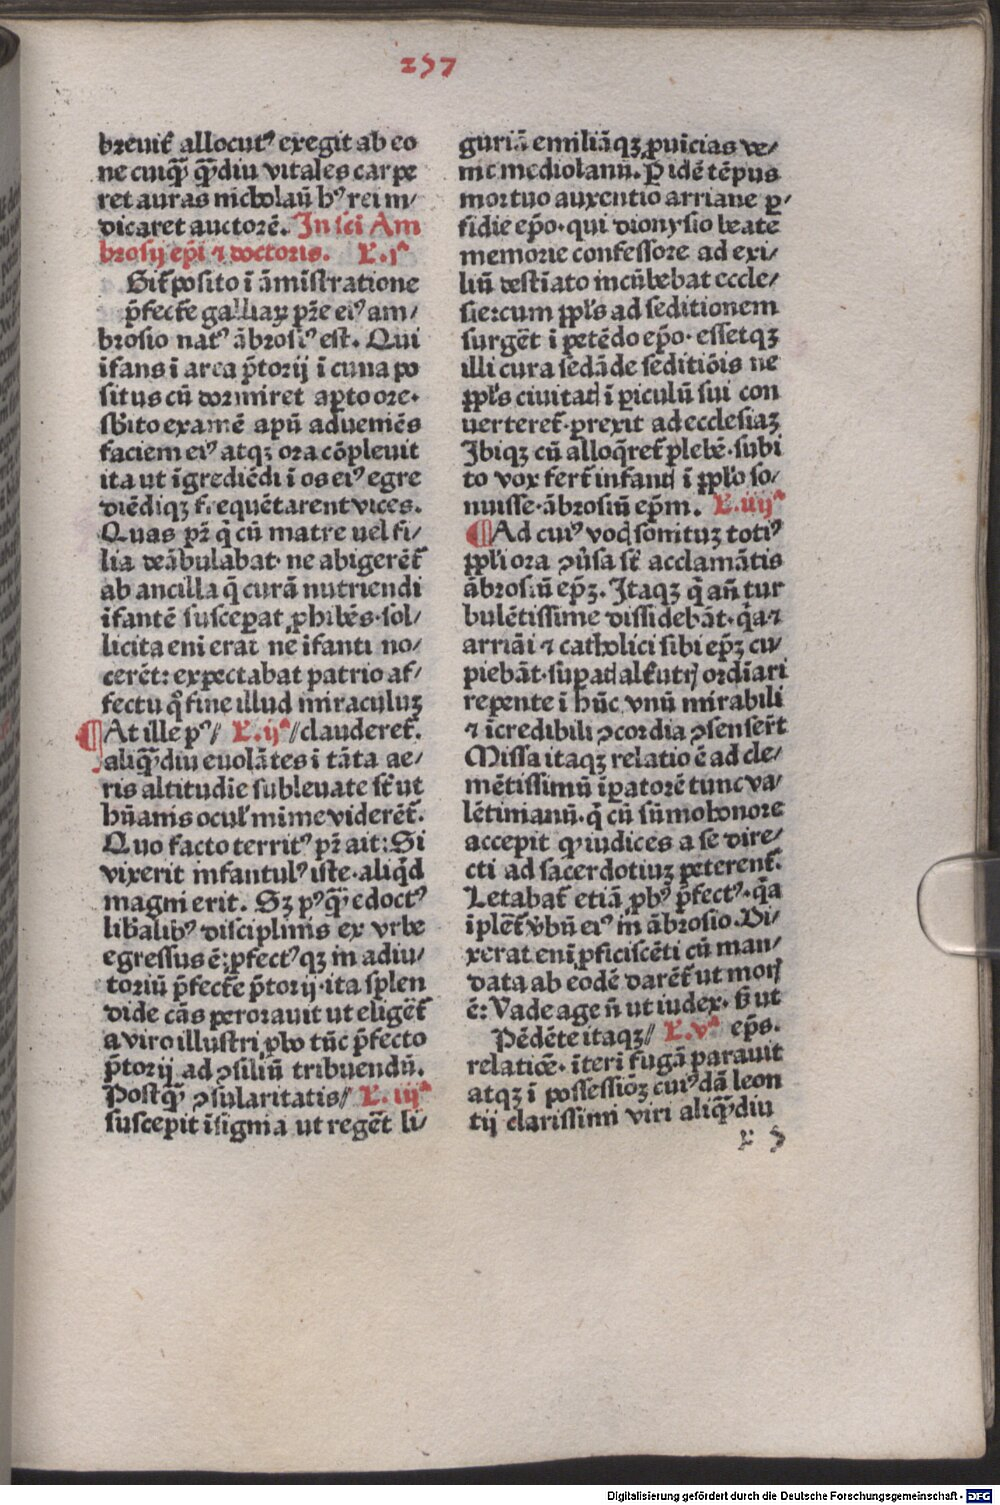 257
breuit᷑ allocutꝰ exegit ab eo
ne cuiqͣ̄ qͣ̄diu vitales carpe
ret auras nicholaū hꝰ rei in⸗
dicaret auctorē. In sc̄i Am
brosij ep̄i ⁊ doctoris. L.jᵃ
Sit᷑ posito ī āmīstratione
p̄fect᷑e galliaꝝ pr̄e eiꝰ am⸗
brosio natꝰ ābrosiꝰ est. Qui
ifans ī area p̄torij ī cuna po
situs cū dormiret aꝑto ore·
sb̄ito examē apū adueniēs
faciem eiꝰ atqꝫ ora cōpleuit
ita ut īgrediēdi ī os eiꝰ egre
diēdiqꝫ frequētarent vices.
Quas pr̄ q̄ cū matre uel fi⸗
lia deābulabat· ne abigerēt᷑
ab ancilla q̄ curā nutriendi
ifantē susceꝑat ꝓhibēs· sol⸗
licita eni erat ne ifanti no⸗
cerēt: expectabat patrio af⸗
fectu qͦ fine illud miraculuꝫ
¶At ille pꝰ⫽ L.ijᵃ⫽clauderet᷑.
aliqͣ̄diu euolātes ī tāta ae⸗
ris altitudie subleuate st᷑ ut
hūanis ocul᷑ mime viderēt᷑.
Quo facto territꝰ pr̄ ait: Si
vixerit infantulꝰ iste· aliqͥd
magni erit. Sꝫ pꝰqͣ̄ edoctꝰ
lib̄alibꝰ disciplinis ex vrbe
egressus ē: ꝓfectꝰqꝫ in adiu⸗
toriū p̄fect᷑e p̄torij· ita splen
dide cās perorauit ut eligēt᷑
a viro illustri ꝓbo tūc p̄fecto
p̄torij ad ꝯsiliū tribuendū.
Postqͣ̄ ꝯsularitatis⫽ L.iijᵃ
suscepit īsignia ut regēt li⸗
guriā emiliāqꝫ ꝓuīcias ve⸗
nit mediolanū. Ꝑ idē tēpus
mortuo auxentio arriane ꝑ⸗
fidie ep̄o· qui dionysio beate
memorie confessore ad exi⸗
liū destīato incūbebat eccle⸗
sie: cum ppl᷑s ad seditionem
surgēt ī petēdo ep̄o· essetqꝫ
illi cura sedāde seditiōis ne
ppl᷑s ciuitatꝭ ī ꝑiculū sui con
uerteret᷑· ꝑrexit ad ecclesiaꝫ
Ibiqꝫ cū alloq̄ret᷑ plebē· subi
to vox fert᷑ infantꝭ ī pplo so⸗
nuisse· ābrosiū ep̄m. L.iiijᵃ
¶Ad cuiꝰ vocꝭ sonituꝫ totiꝰ
ppl᷑i ora ꝯūsa st᷑ acclamātis
ābrosiū ep̄ꝫ. Itaqꝫ q̄ an̄ tur
bulētissime dissidebāt· qͣa ⁊
arriāi ⁊ catholici sibi ep̄ꝫ cu⸗
piebāt· suꝑatꝭ alt᷑utrꝭ ordīari
repente ī hūc vnū mirabili
⁊ īcredibili ꝯcordia ꝯsenser̄t
Missa itaqꝫ relatio ē ad cle⸗
mētissimū iꝑatorē tunc va⸗
lētinianū· q̄ cū sūmo honore
accepit ꝙ iudices a se dire⸗
cti ad sacerdotiuꝫ peterent᷑.
Letabat᷑ etiā ꝓbꝰ p̄fectꝰ· qͣa
iplēt᷑ v̄bū eiꝰ in ābrosio. Di⸗
xerat eni ꝓficiscēti cū man⸗
data ab eodē darēt᷑ ut morꝭ
ē: Vade age n̄ ut iudex· sꝫ ut
Pēdēte itaqꝫ⫽ L.vᵃ ep̄s.
relatiōe· īteri fugā parauit
atqꝫ ī possessiōꝫ cuiꝰdā leon
tij clarissimi viri aliqͣ̄diu